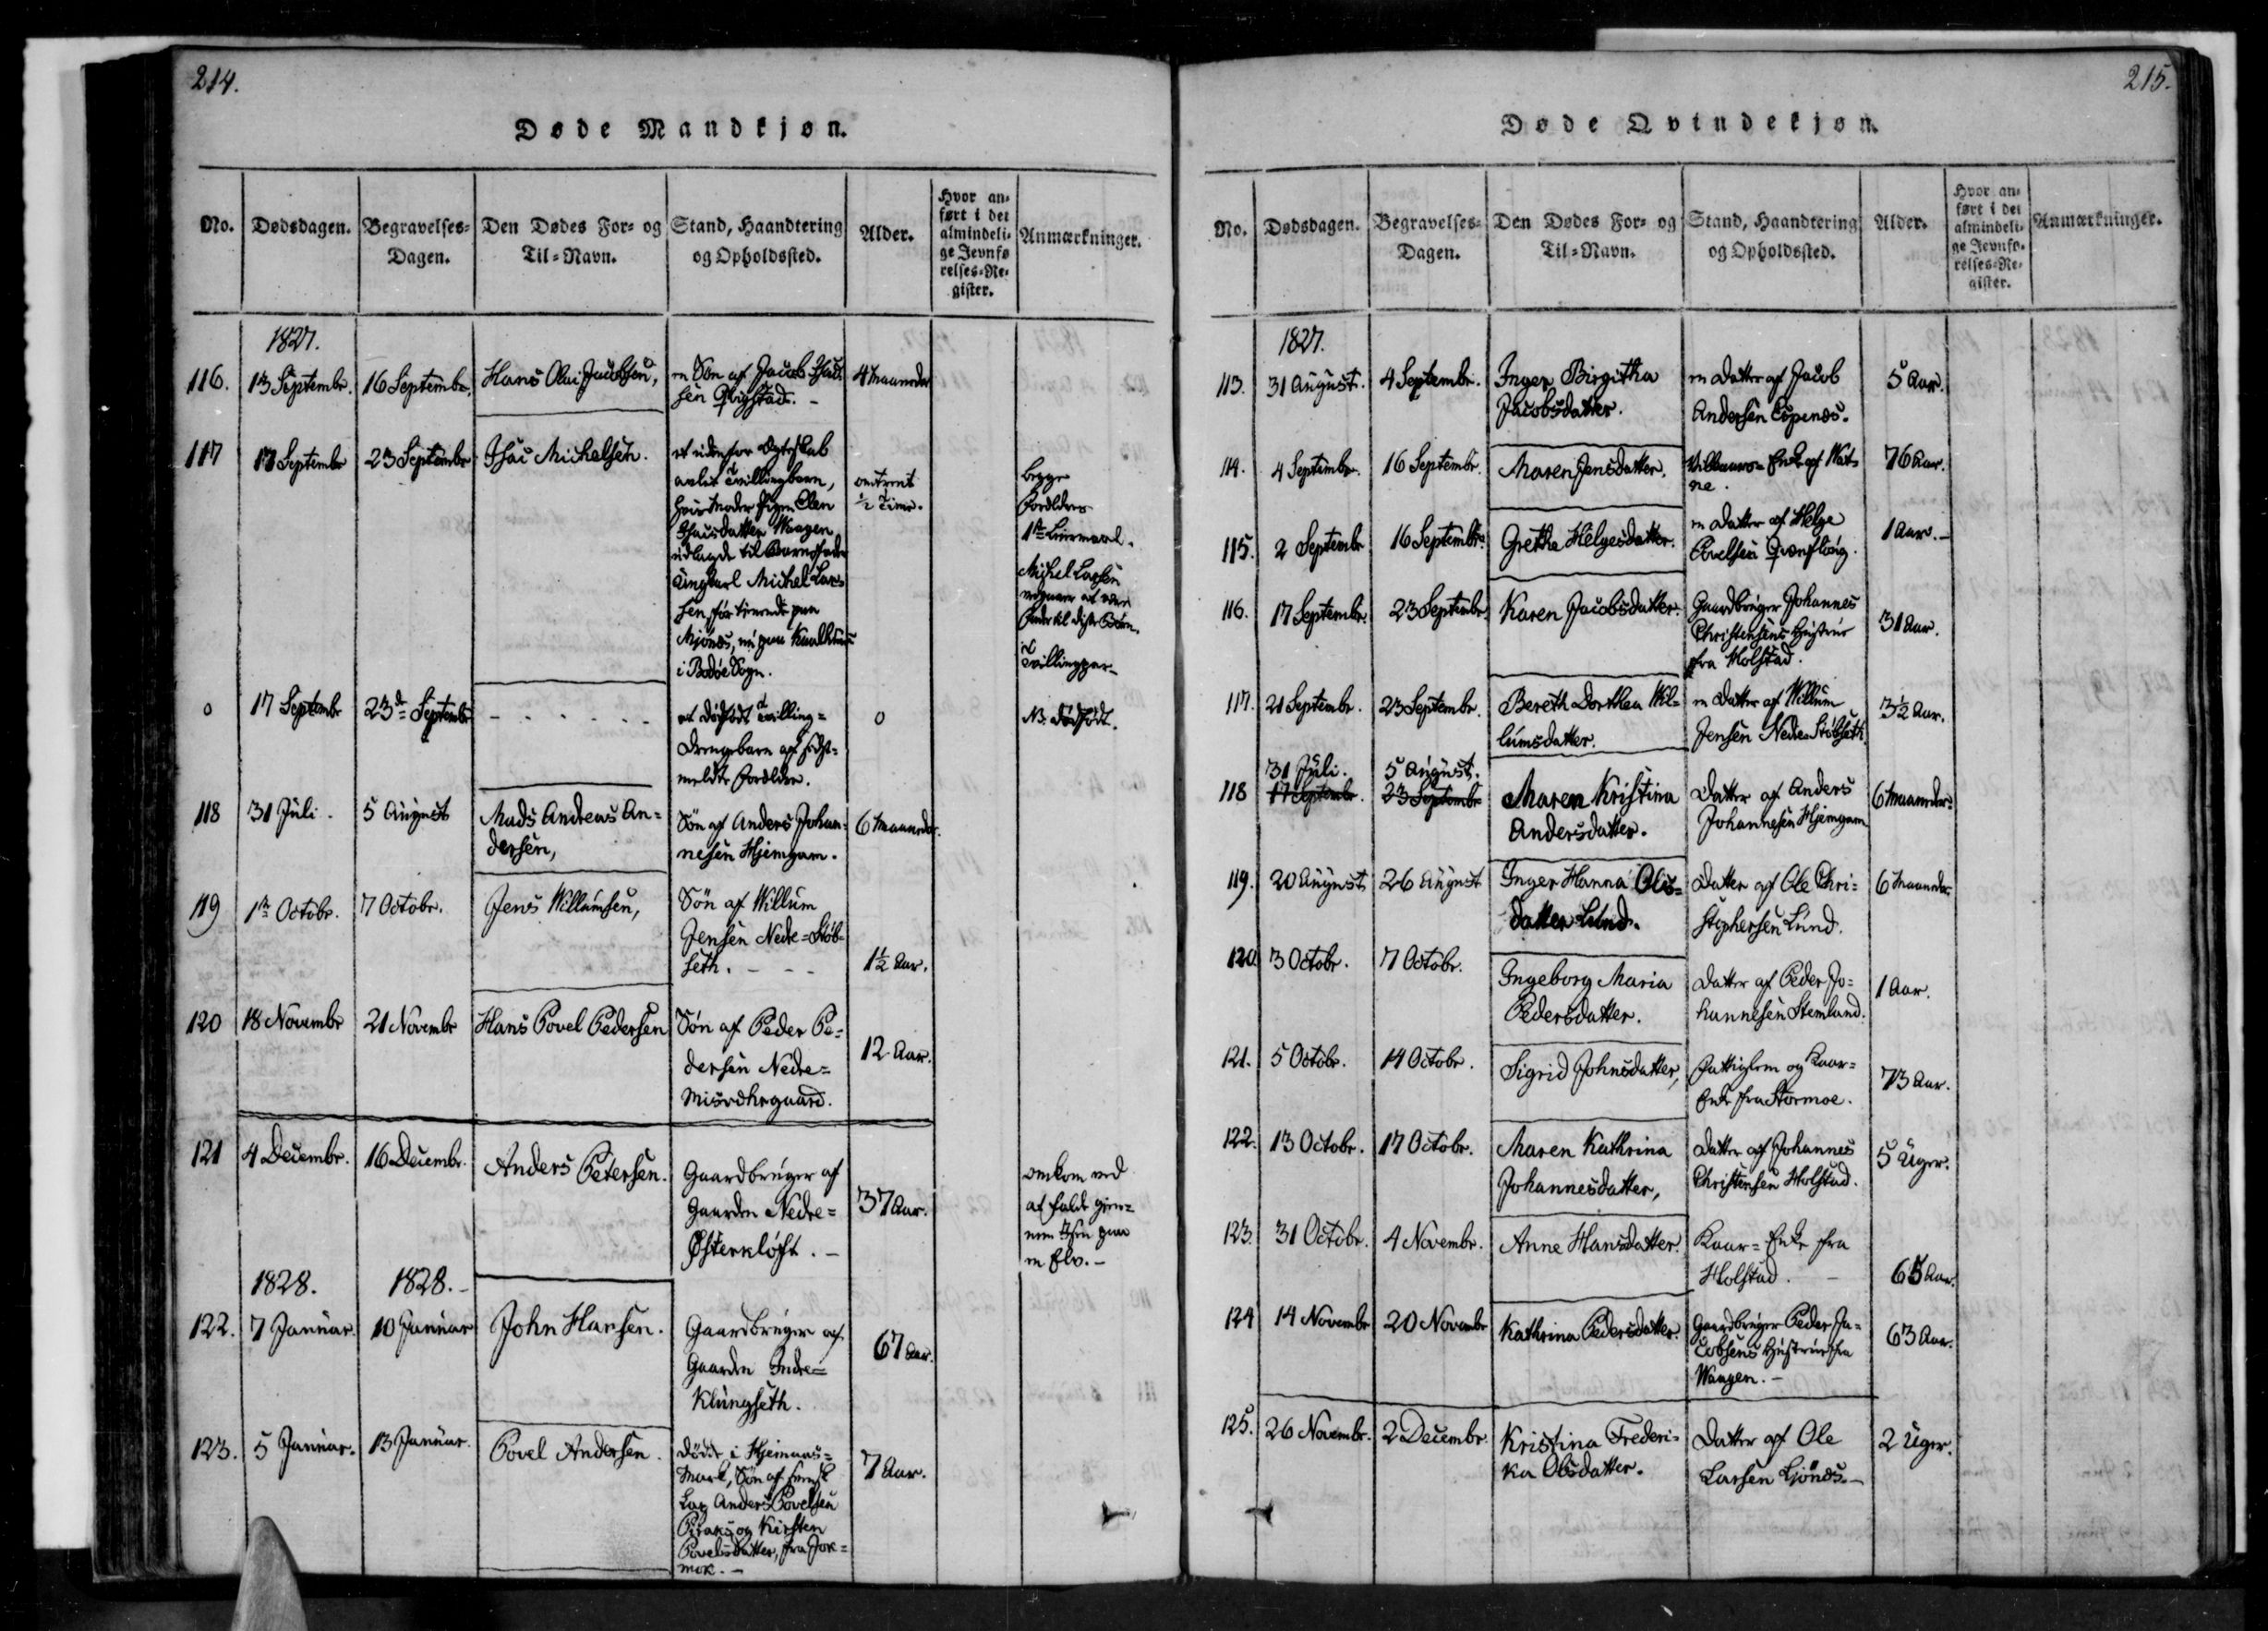 214.
Døde Mandkjøn.
No. Dødsdagen. Begravelses-Dagen. Den Dødes For- og Til-Navn. Stand, Haandtering og Opholdssted. Alder. Hvor anført i det almindelige Jevnførelses-Register. Anmærkninger.
1827.
116. 13 Septembr. 16 Septembr. Hans Olai Jacobsen, en Søn af Jacob
sen Qvigstad. - 4 Maaneder
117 17 Septembr 23 Septembr Isac Michelsen. et uden for Ægteskab
avlet Tvillingbarn,
hvis Moder Pigen Elen
Isacsdatter Waagen
udlagde til Barnefader
Ungkarl Michel Lar-
sen, før tienende paa
Mjønes, nu paa
i Bodøe Sogn.
omtrent
1/2 Time.
begge
Forældres
1ste Leiermaal.
Michel Larsen
Fader til disse Børn.
Tvillingpar-
0 17 Septembr 23de Septembr - - - - - - et dødfødt Tvilling=
Drengebarn af sidst=
meldte Forældre. 0 NB. dødfødt.
118 31 Juli. 5 August Mads Andreas An=
dersen, Søn af Anders Johan=
nesen Hjemgam. 6 Maaneder.
119 1ste Octobr. 7 Octobr. Jens Willumsen, Søn af Willum
Jensen Nedre=Støb=
seth. - - - 1½ Aar.
120 18 Novembr 21 Novembr Hans Povel Pedersen Søn af Peder Pe=
dersen Nedre=
Misværhegaard. 12 Aar.
121 4 Decembr. 16 Decembr. Anders Petersen. Gaardbruger af
Gaarden Nedre=
Østerkløft. - 37 Aar.
omkom ved
at falde gien=
nem Isen paa
en Elv. -
1828. 1828. -
122. 7 Januar. 10 Januar John Hansen. Gaardbruger af
Gaarden Indre=
Klungseth. 67 Aar.
123. 5 Januar. 13 Januar. Povel Andersen. døde i Hjemaas=
Mark, Søn af svensk
Lap Anders Povelsen
Piraks og Kirsten
Povelsdatter, fra Jok=
mok. - 7 Aar.
215.
Døde Qvindekjøn.
No. Dødsdagen. Begravelses-Dagen. Den Dødes For- og Til-Navn. Stand, Haandtering og Opholdssted. Alder. Hvor anført i det almindelige Jevnførelses-Register. Anmærkninger.
1827.
113. 31 August. 4 Septembr. Inger Birgitha
Jacobsdatter. en Datter af Jacob
Andersen Espenæs. 5 Aar.
114. 4 Septembr. 16 Septembr. Maren Jensdatter. Enke af Wat-
ne. 76 Aar.
115. 2 Septembr 16 Septembr. Gretha Helgesdatter. en Datter af Helge
Povelsen Qvænflaug. 1 Aar. -
116. 17 Septembr. 23 Septembr. Karen Jacobsdatter. Gaardbruger Johannes
Christensens Hustrue
fra Holstad. 31 Aar.
117. 21 Septembr. 23 Septembr. Bereth Dorthea Wil=
lumsdatter. en Datter af Willum
Jensen Nedre Støbseth. 3½ Aar.
118 31 Juli. 5 August.
17 Septembr. 23 Septembr. Maren Kristina
Andersdatter. Datter af Anders
Johannesen Hjemgam 6 Maaneder.
119. 20 August 26 August Inger Hanna Ols=
datter Lund. Datter af Ole Chri=
stophersen Lund. 6 Maaneder
120. 3 Octobr. 7 Octobr. Ingeborg Maria
Pedersdatter. Datter af Peder Jo=
hannesen Stemland. 1 Aar.
121. 5 Octobr. 14 Octobr. Sigrid Johnsdatter, Fattiglem og Kaar=
Enke fra Stormoe. 73 Aar.
122. 13 Octobr. 17 Octobr. Maren Kathrina
Johannesdatter, Datter af Johannes
Christensen Holstad. 5 Uger.
123. 31 Octobr. 4 Novembr. Anne Hansdatter. Kaar=Enke fra
Holstad. - 65 Aar.
124 14 Novembr 20 Novembr Kathrina Pedersdatter. Gaardbruger Peder Ja=
cobsens Hustrue fra
Waagen. - 63 Aar.
125. 26 Novembr. 2 Decembr. Kristina Frederi=
ka Olsdatter. Datter af Ole
Larsen Ljønæs. - 2 Uger.